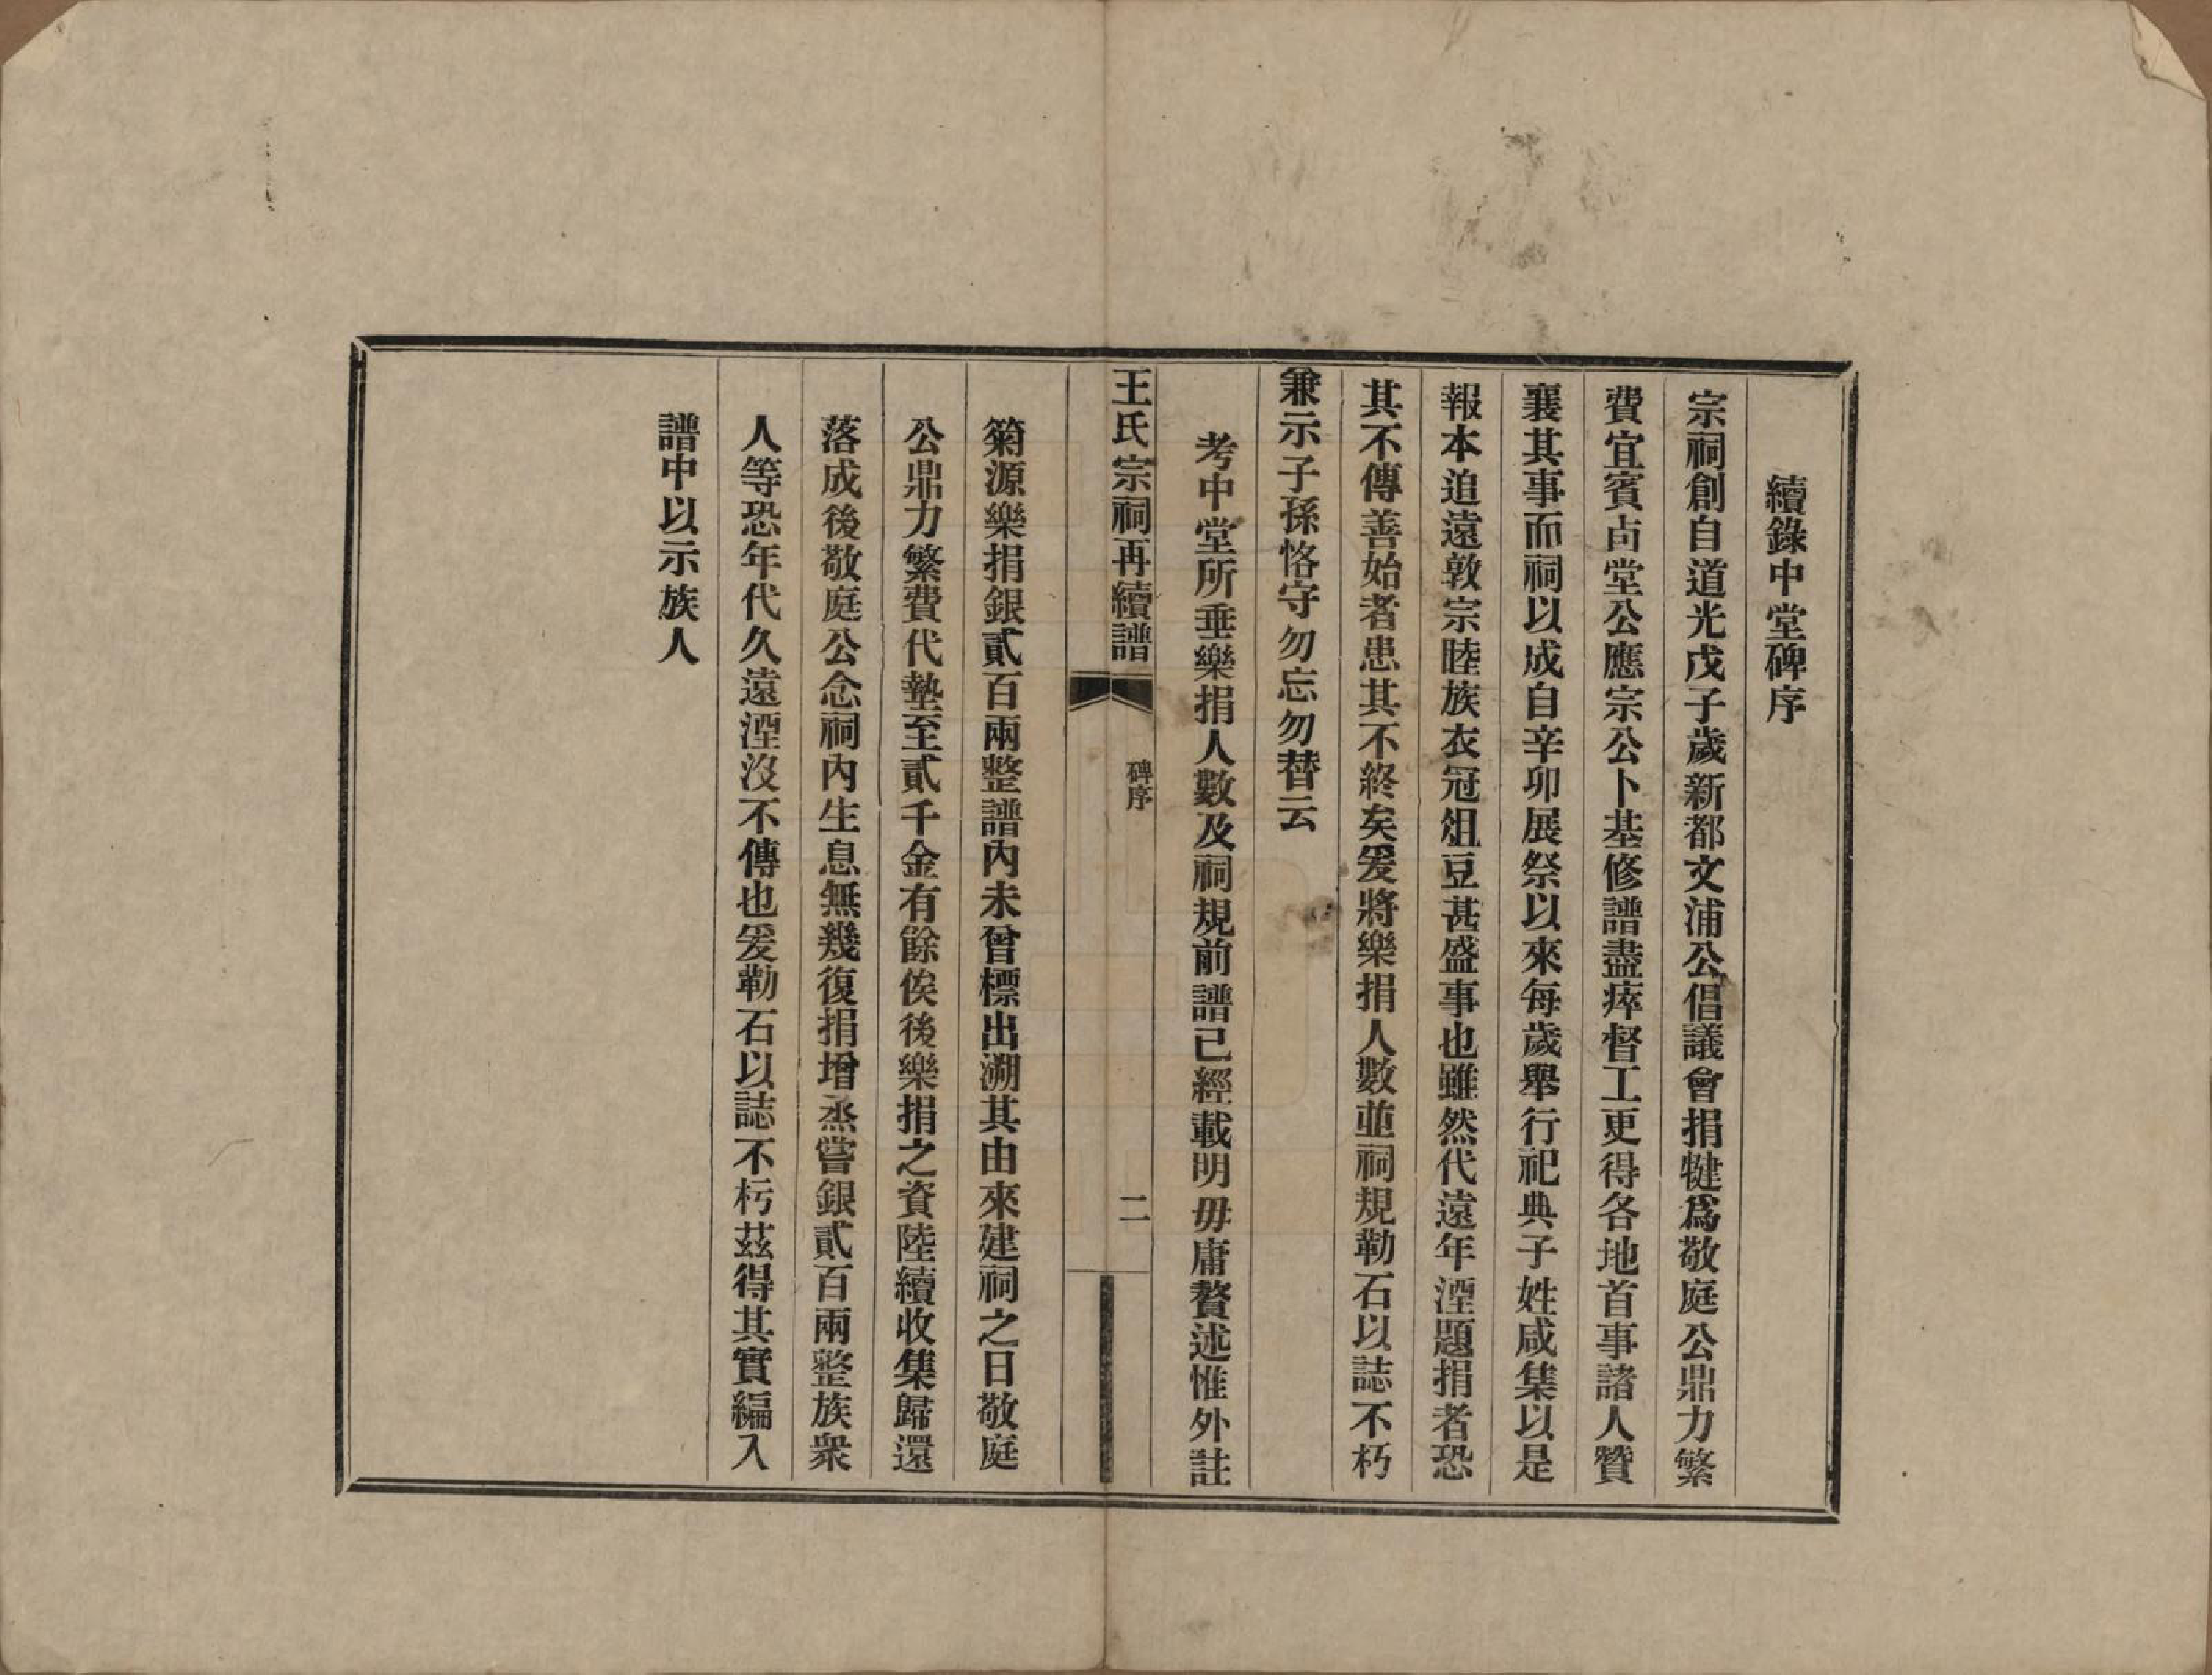 續錄中堂碑序
宗祠創自道光戊子歲新都文浦公倡議會捐犍爲敬庭公鼎力繁
費宜賓卣堂公應宗公卜基修譜盡瘁督工更得各地首事諸人贊
襄其事而祠以成自辛卯展祭以來每歲舉行祀典子姓咸集以是
報本追遠敦宗睦族衣冠俎豆甚盛事也雖然代遠年湮題捐者恐
其不傳善始者患其不終矣爰將樂捐人數並祠規勒石以誌不朽
兼示子孫恪守勿忘勿替云
考中堂所垂樂捐人數及祠規前譜已經載明毋庸贅述惟外註
王氏宗祠再續譜 碑序 二
菊源樂捐銀貳百兩整譜內未曾標出溯其由來建祠之日敬庭
公鼎力繁費代墊至貳千金有餘俟後樂捐之資陸續收集歸還
落成後敬庭公念祠內生息無幾復捐增烝嘗銀貳百兩整族衆
人等恐年代久遠湮沒不傳也爰勒石以誌不朽茲得其實編入
譜中以示族人